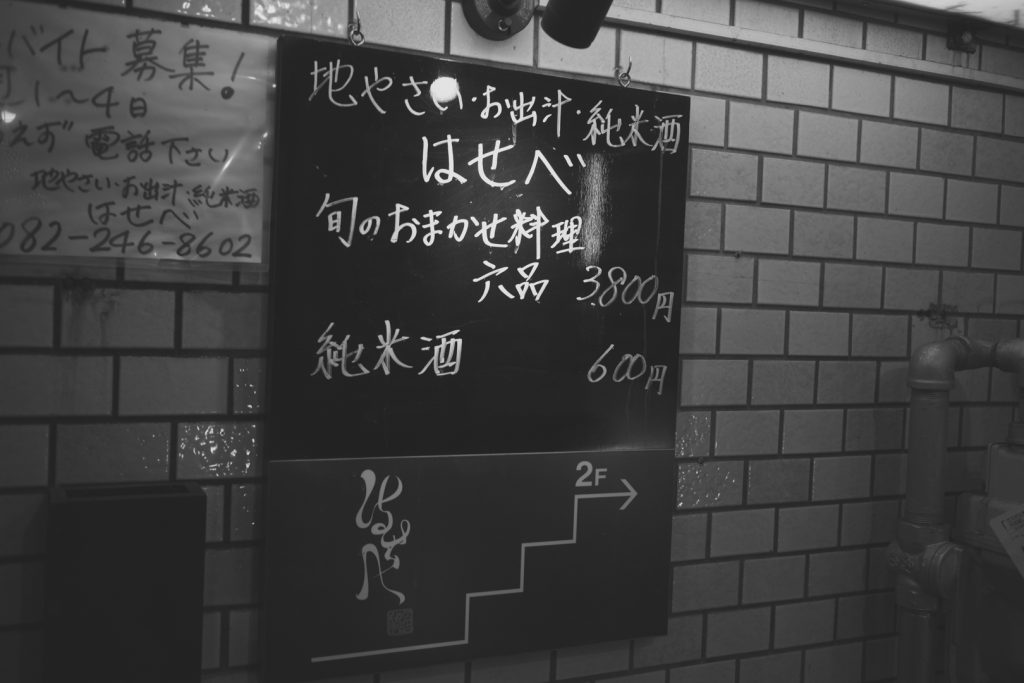 バイト募集!
1〜4日
電話下さい
地やさい・お出汁・純米酒
はせべ
082-246-8602
地やさい・お出汁・純米酒
はせべ
旬のおまかせ料理
六品 3.800円
純米酒 600円
はせべ
2F